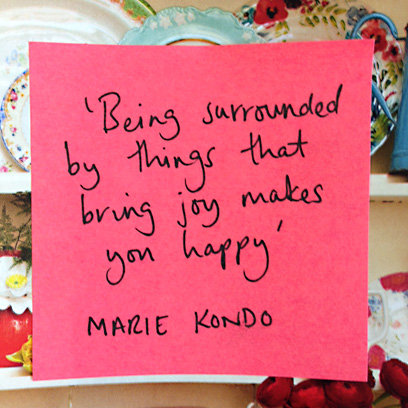 'Being surrounded
by things that
bring joy makes
you happy'
MARIE KONDO